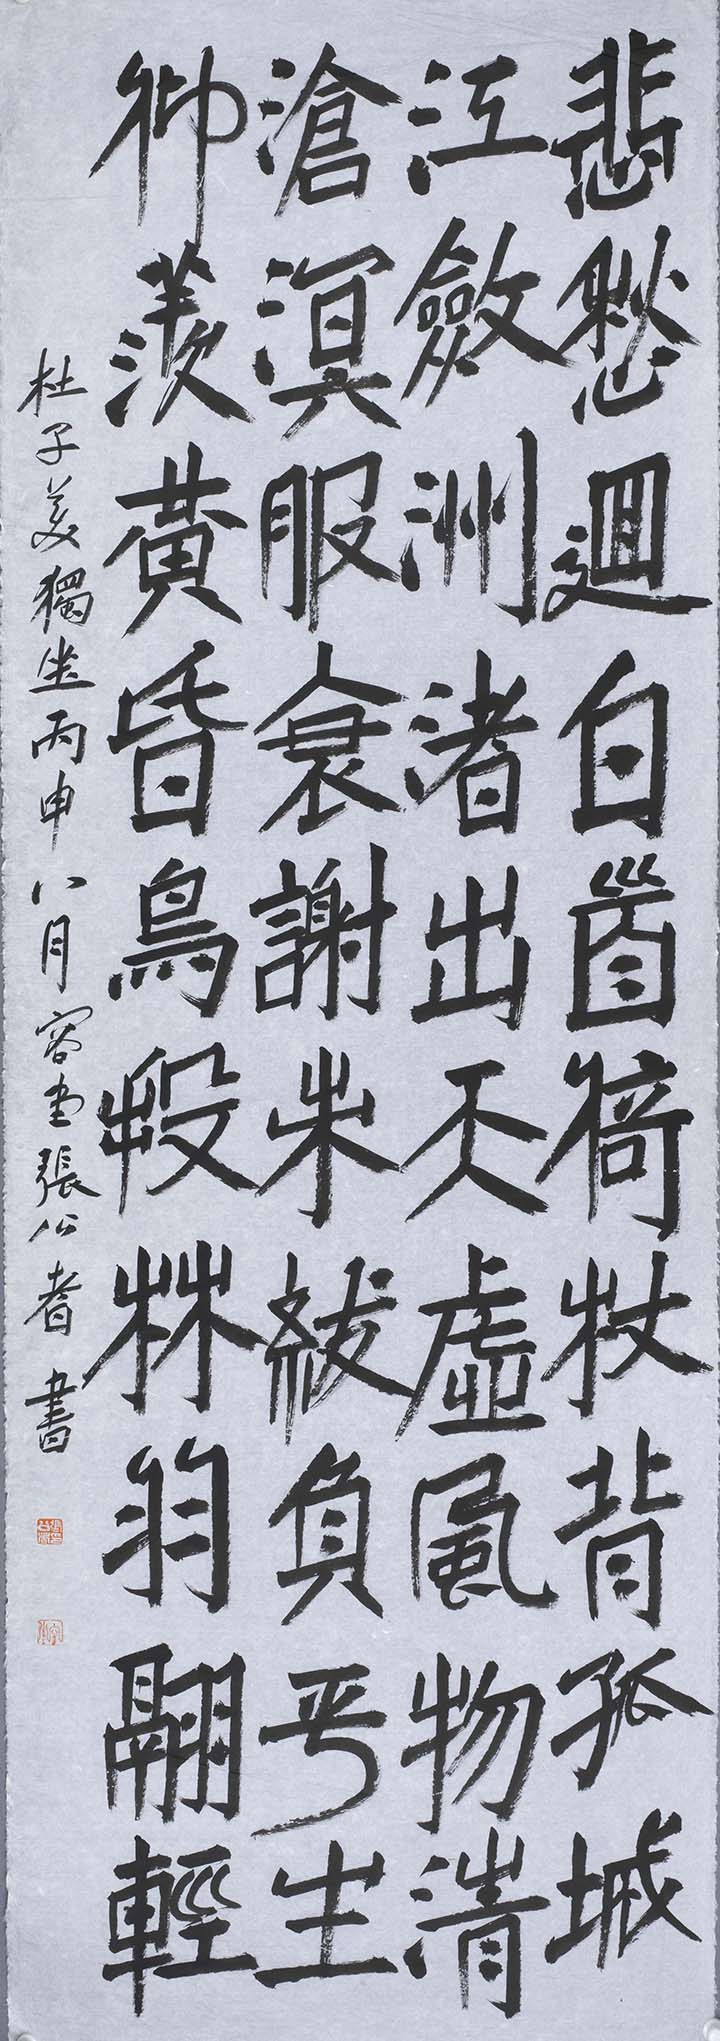 悲愁迴白首倚杖背孤城
江斂洲渚出天虛風物清
滄溟服衰謝朱紱負平生
仰羨黃昏鳥投林羽翮輕
杜子美獨坐丙申八月容堂張公者書